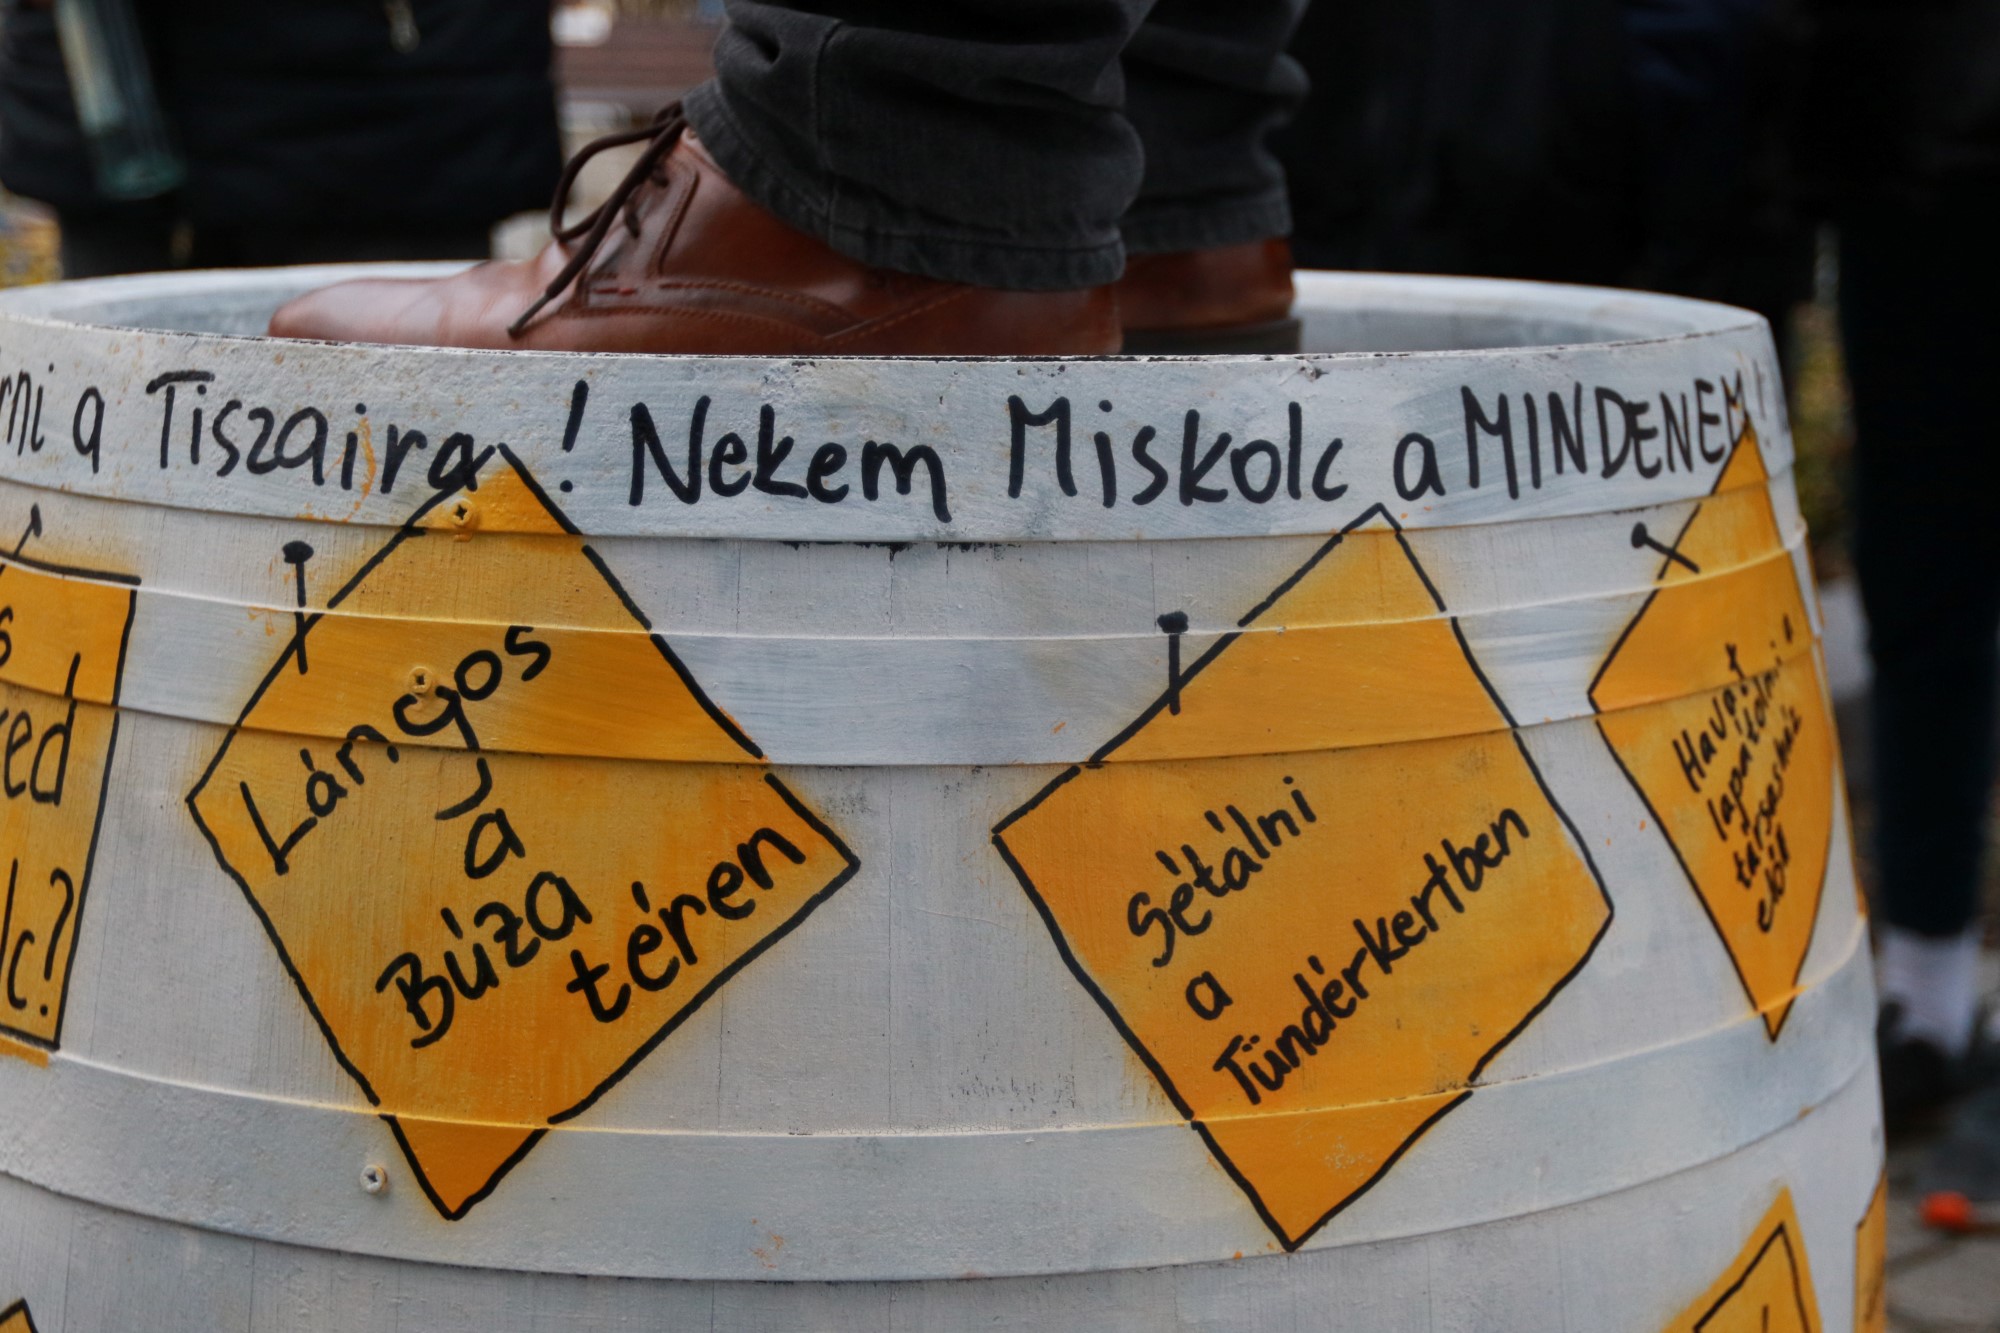 a Tiszaira! Nekem Miskolc a MINDENEM!
Lángos
a
Búza
téren
Sétálni
a
Tündérkertben
Havat
lapátolni a
társasház
előtt